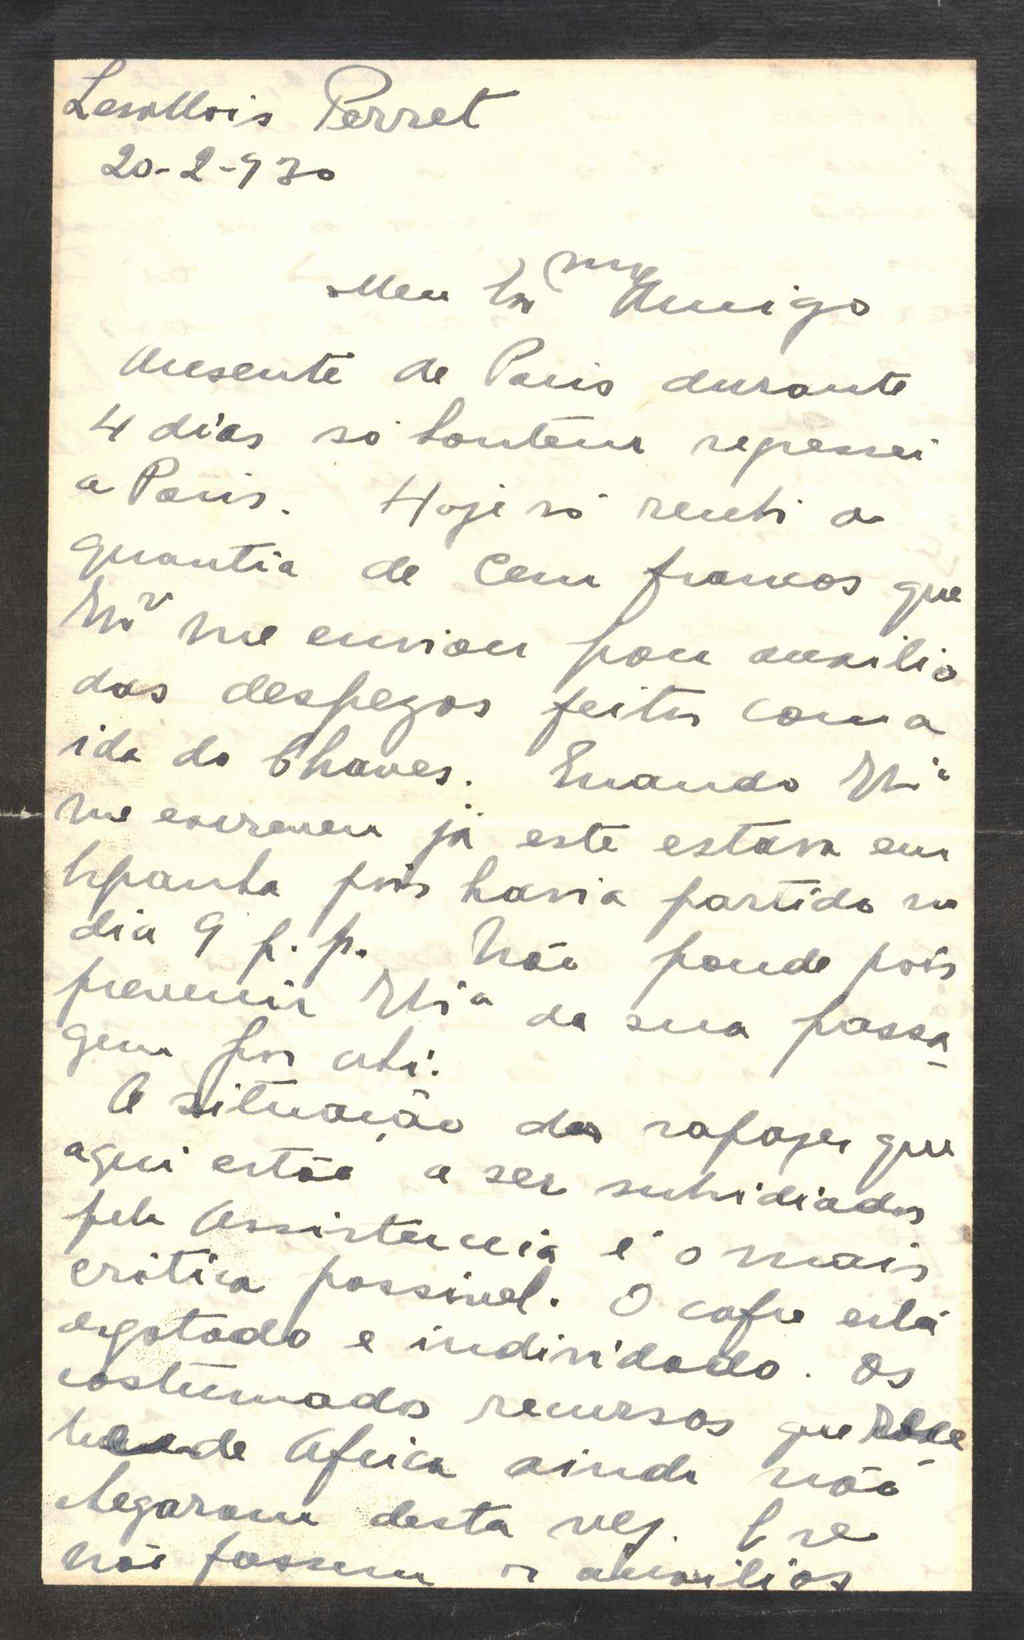 Levallois Perret
20-2-930
Meu Exmo Amigo
Ausente de Paris durante
4 dias só hontem regressei
a Paris. Hoje só recebi a
quantia de Cem francos que
V. me enviou para auxilio
das despezas feitas com a
ida do Chaves. Quando V.
me escreveu já este estava em
Hespanha pois havia partido no
dia 9 p.p. Não poude pois
prevenir V. da sua passa-
gem por ahi.
A situação dos rapazes que
aqui estão a ser subsidiados
pela Assistencia é o mais
critica possivel. O cofre está
exgotado e individado. Os
costumados recursos que
de Africa ainda não
chegaram desta vez. E se
não fossem os auxilios